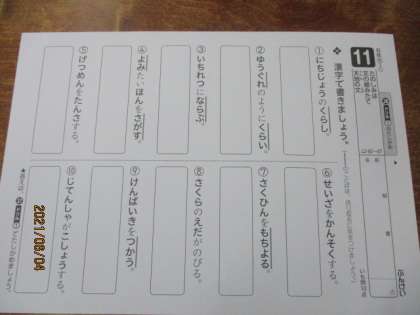 11
たのしみは
文の組み立て
天地の文
❖ 漢字で書きましょう。
① にちじょうのくらし。
② ゆうぐれのようにくらい。
③ いちれつにならぶ。
④ よみたいほんをさがす。
⑤ げつめんをたんさする。
⑥ せいざをかんそくする。
⑦ さくひんをもちよる。
⑧ さくらのえだがのびる。
⑨ けんばいきをつかう。
⑩ じてんしゃがこしょうする。
2021/09/04